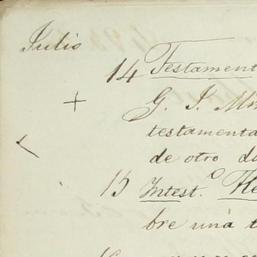 Julio
14 Testament
+ G. J. M
testamenta
de otro d
15 Intest.o He
bre una t